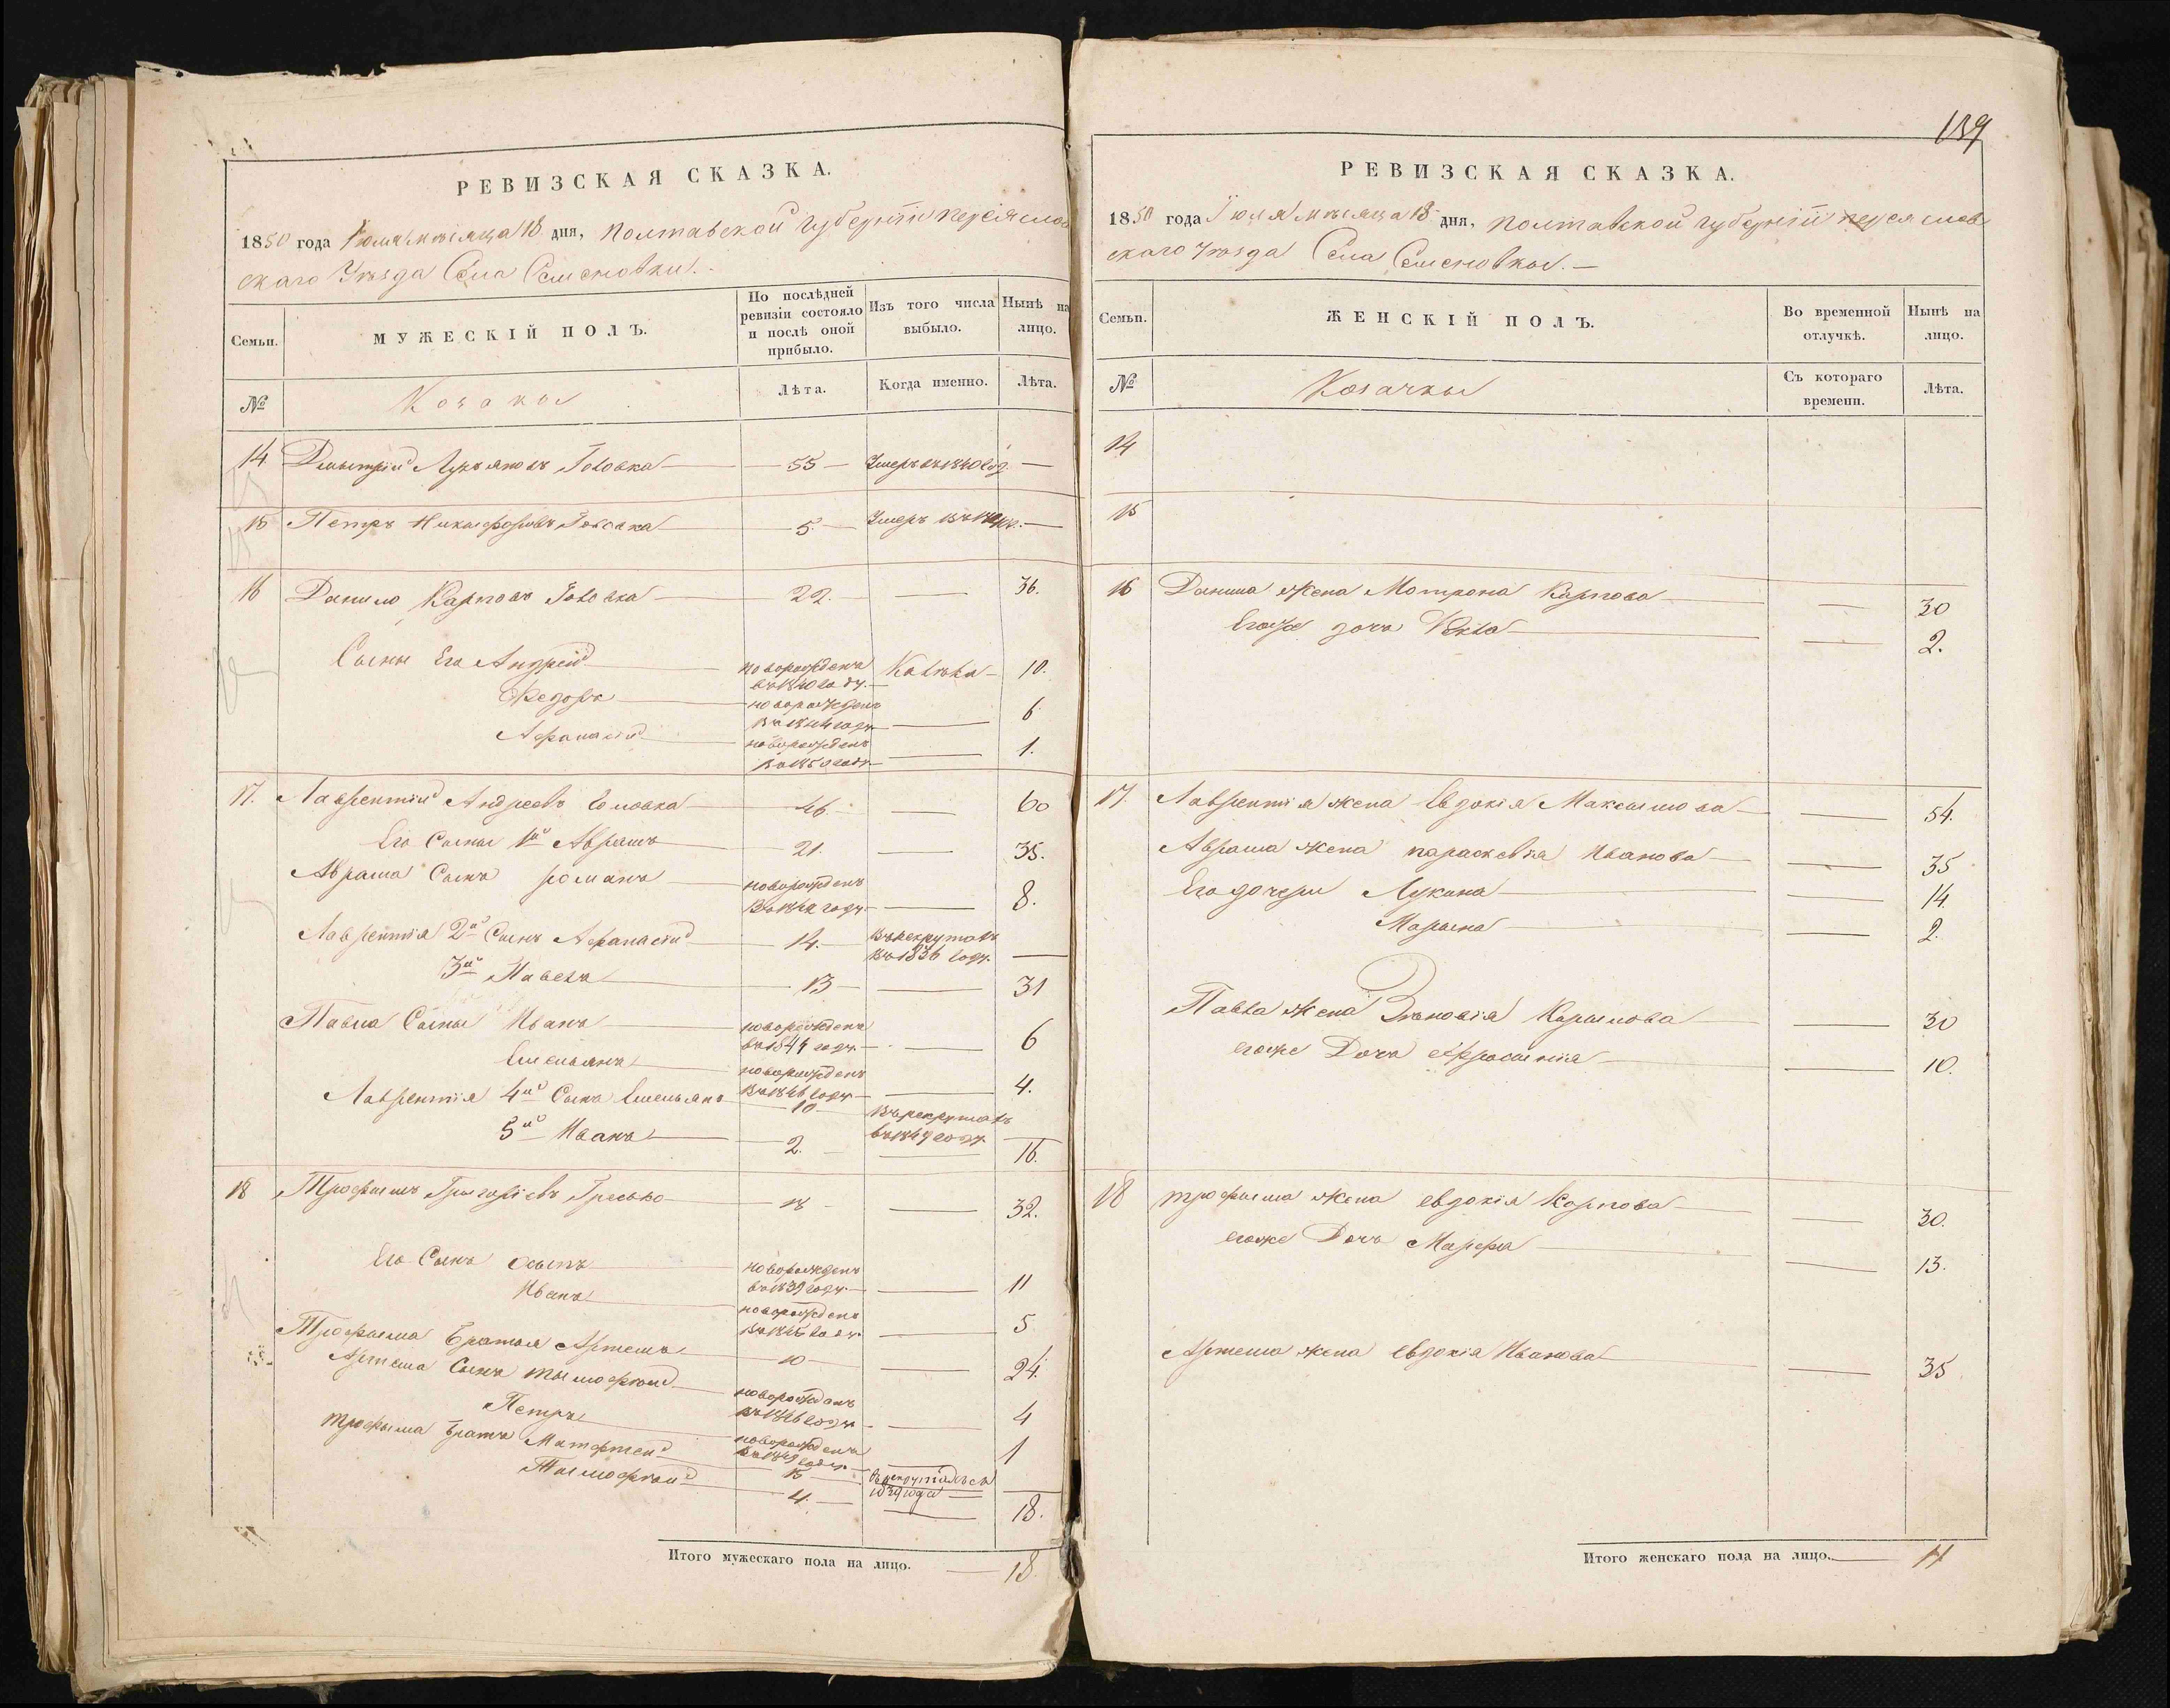 РЕВИЗСКАЯ СКАЗКА.
1850 года Іюля мѣсяца 18 дня, Полтавской Губерніи Переяслов
скаго Уѣзда Села Семеновки.
Семьи.
МУЖЕСКІЙ ПОЛЪ.
По послѣдней ревизіи состояло и послѣ оной прибыло.
Изъ того числа выбыло.
Нынѣ на лицо.
№
Козаки
Лѣта.
Когда именно.
Лѣта.
14 Дмытрій Лукъяновъ 55 Умеръ въ 1840 год —
15 Петръ Никифоровъ 5. Умеръ въ —
16 Данило Карповъ 22. — 36.
Сыны Его Андрей новорожденъ въ 1840 году. — 10.
Федоръ новорожденъ въ 1844 году — 6
Афанасій новорожденъ году — 1.
17. Лаврентій Андреевъ 46. — 60
Его Сыны 1й Аврамъ 21. — 35.
Аврама Сынъ романъ новорожденъ въ 1842 году. — 8.
Лаврентія 2й Сынъ Афанасій 14. Въ рекрутахъ въ 1836 году. —
3й Павелъ 13 — 31
Павла Сыны Иванъ новорожденъ въ 1844 году. — 6
Емельянъ новорожденъ въ 1846 году — 4.
Лаврентія 4й Сынъ Емельянъ 10 Въ рекрутахъ въ 1849 году —
5й Иванъ 2. — 16.
18 Трофымъ Григоріевъ 18 — 32.
Его Сынъ Осыпъ новорожденъ въ 1839 году. — 11
Иванъ новорожденъ въ 1845 году. — 5
Трофыма братья Артемъ 10 — 24.
Артема Сынъ тымофѣй новорожденъ въ 1846 году — 4
Петръ новорожденъ въ 1849 году. — 1
трофыма братъ Матфей 15 —
Тымофѣй 4. — 18.
Итого мужескаго пола на лицо. — 18
159
РЕВИЗСКАЯ СКАЗКА.
1850 года Іюля мѣсяца 18 дня, Полтавской Губерніи переяслов
скаго Уѣзда Села Семеновкы. —
Семьи.
ЖЕНСКІЙ ПОЛЪ.
Во временной отлучкѣ.
Нынѣ на лицо.
№
Козачкы
Съ котораго времени.
Лѣта.
14
15
16 Данила Жена Мотрона Карпова — 30
Егоже дочь — 2.
17. Лаврентія жена Евдокія Максимова — 54.
Аврама жена параскевія Иванова — 35
Его дочери Лукина — 14.
Марына — 2.
Павла жена Зѣновія — 30
егоже Дочь — 10.
18 трофыма жена евдокія Карпова — 30.
егоже Дочь Марфа — 13.
Артема жена евдокія Иванова — 35
Итого женскаго пола на лицо. — 11